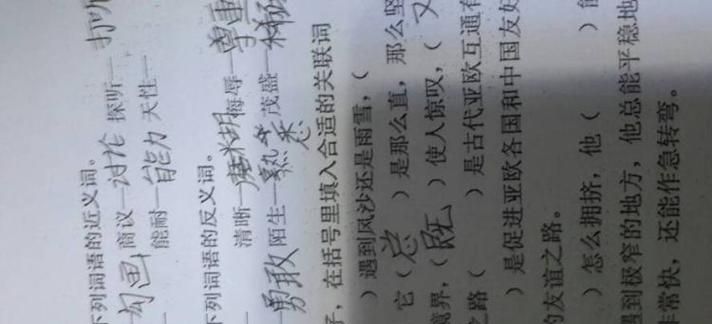 下列词语的近义词。
勾画 商议—讨论 探听—打听
能耐—能力 天性—
下列词语的反义词。
清晰—模糊 侮辱—尊重
勇敢 陌生—熟悉 茂盛—
，在括号里填入合适的关联词
）遇到风沙还是雨雪，（
它（总）是那么直，那么坚
境界，（既）使人惊叹，（又
之路（ ）是古代亚欧互通有
）是促进亚欧各国和中国友好
的友谊之路。
）怎么拥挤，他（ ）能
遇到极窄的地方，他总能平稳地
非常快，还能作急转弯。